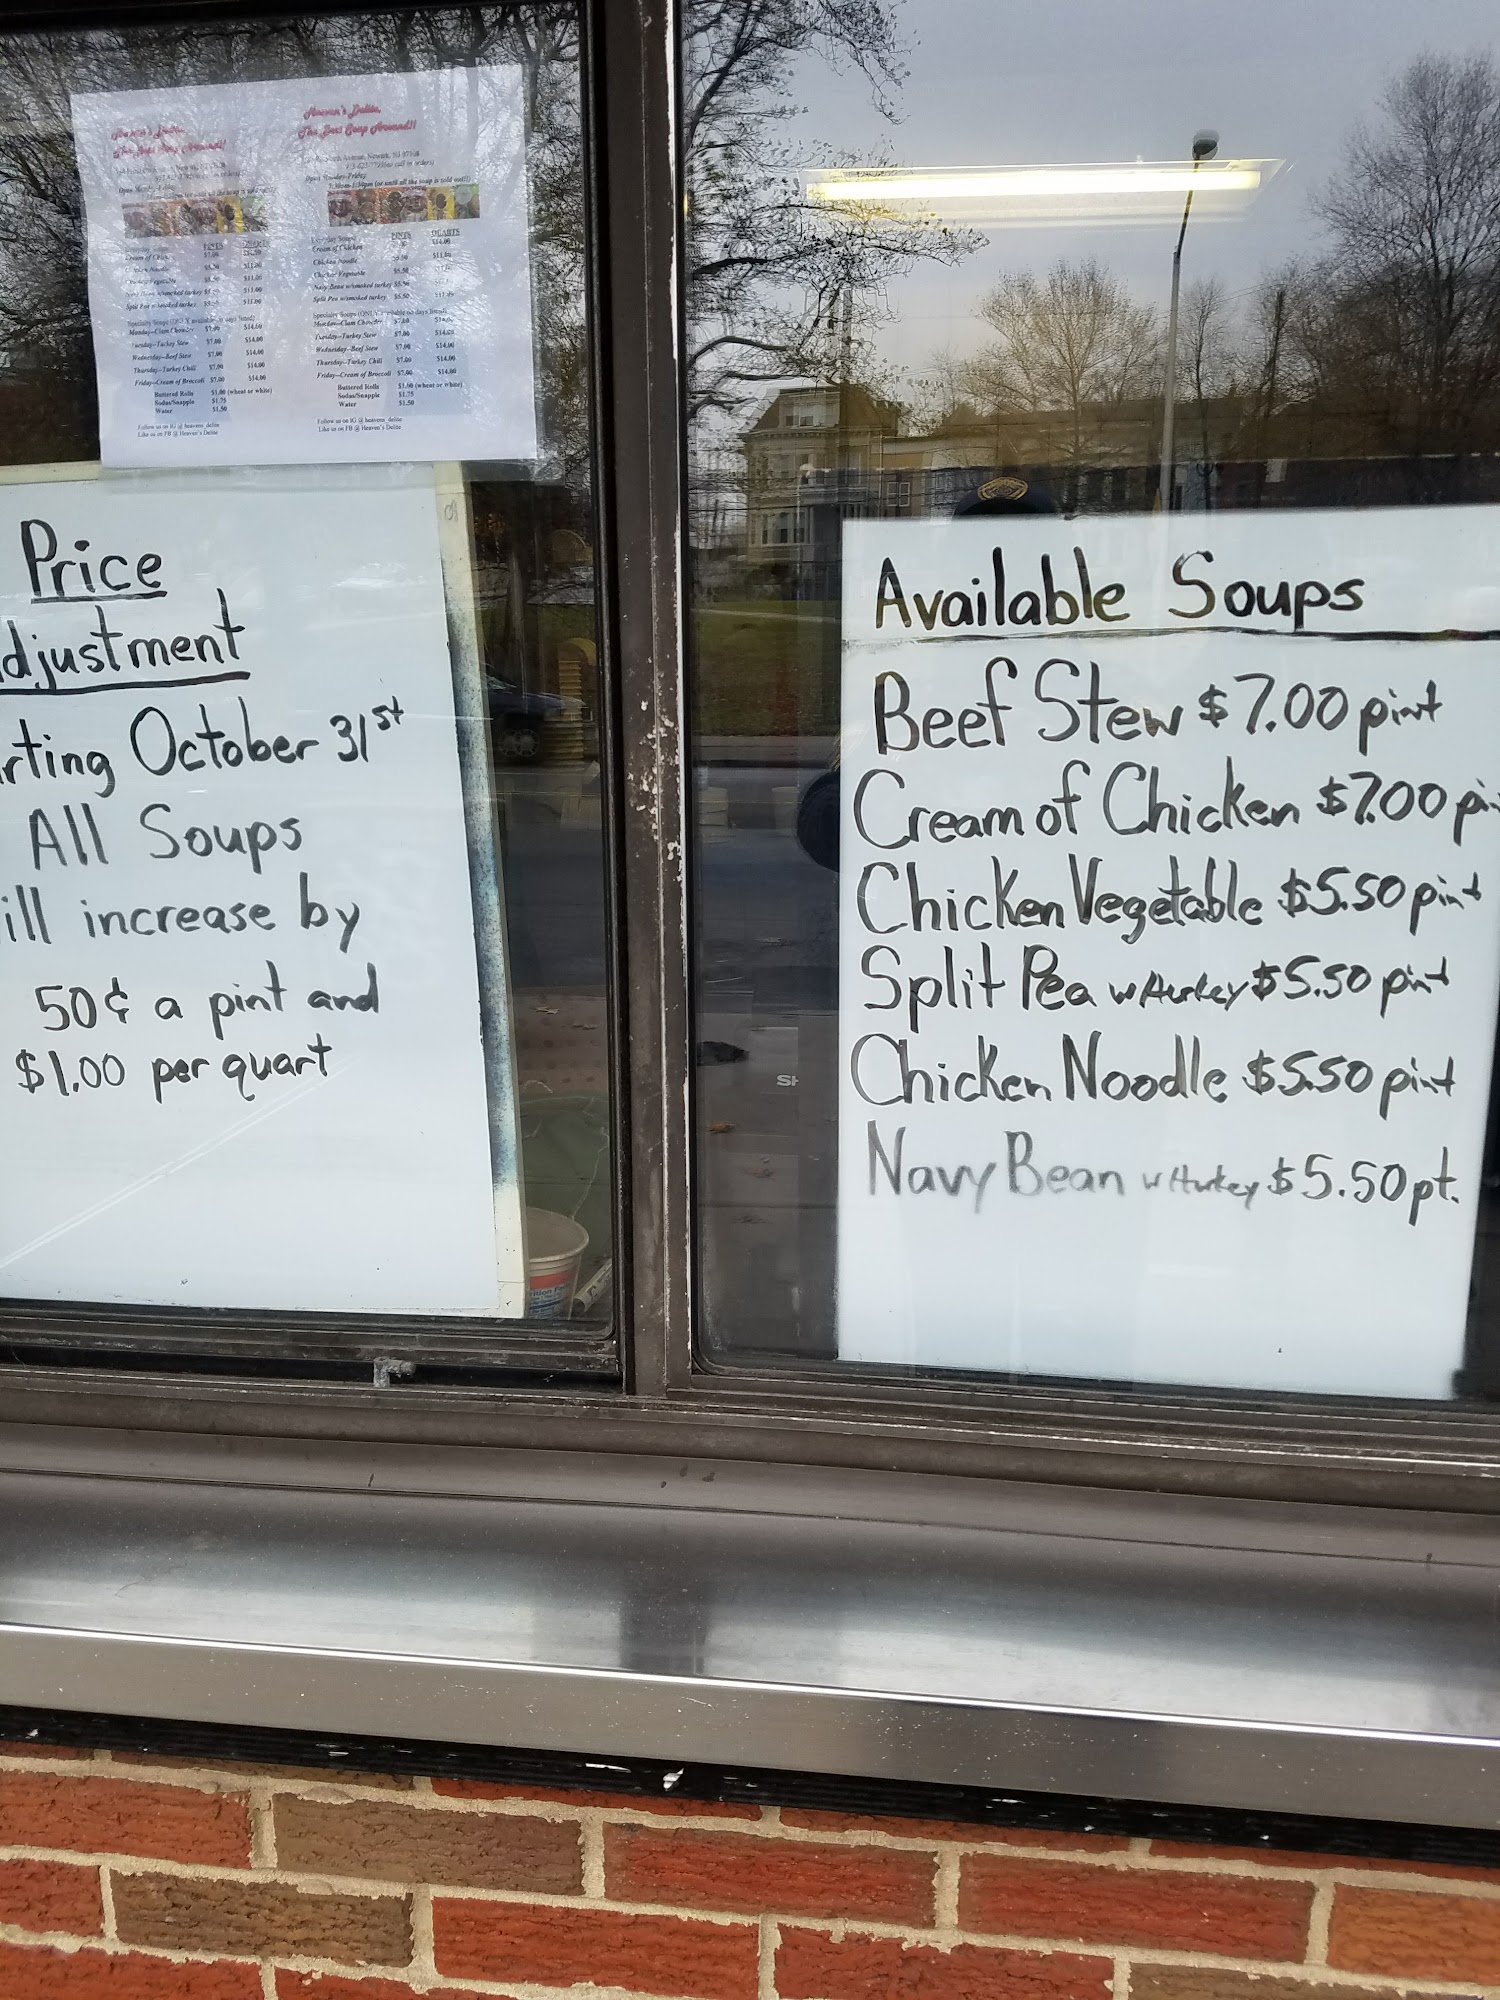 Heaven's Delite,
The Best Soup Around!!
Open Monday-Friday
(or until all the soup is sold out!!)
PINTS QUARTS
Cream of Chicken $14.00
Chicken Noodle $5.50 $11.00
Chicken Vegetable $5.50
Navy Bean w/smoked turkey $5.50
Split Pea w/smoked turkey $5.50
Specialty Soups (ONLY available on days listed)
Monday--Clam Chowder $7.00 $14.00
Tuesday--Turkey Stew $7.00 $14.00
Wednesday--Beef Stew $7.00 $14.00
Thursday--Turkey Chili $7.00 $14.00
Friday--Cream of Broccoli $7.00 $14.00
Buttered Rolls $1.00 (wheat or white)
Sodas/Snapple $1.75
Water $1.50
Follow us on IG @ heavens_delite
Like us on FB @ Heaven's Delite
Price
djustment
rting October 31st
All Soups
ill increase by
50¢ a pint and
$1.00 per quart
Available Soups
Beef Stew $7.00 pint
Cream of Chicken $7.00 pin
Chicken Vegetable $5.50 pint
Split Pea w/turkey $5.50 pint
Chicken Noodle $5.50 pint
Navy Bean w/turkey $5.50 pt.